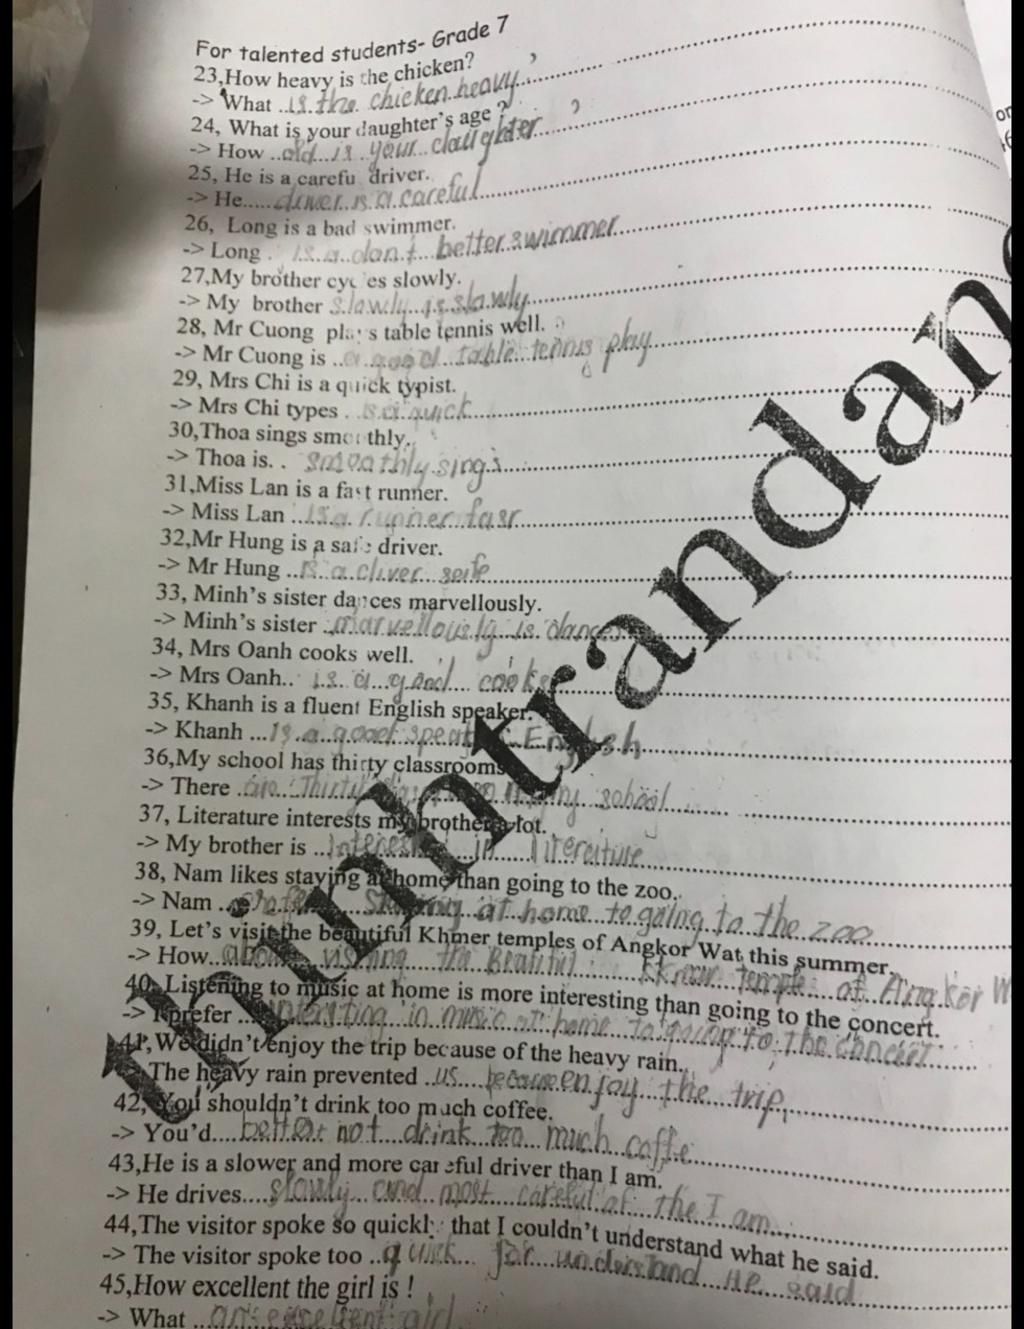 For talented students- Grade 7
23,How heavy is the chicken?
-> What ..is the chicken heavy..?
24, What is your daughter's age ?
-> How ..old is your daughter..?
25, He is a careful driver.
-> He.....driver is a careful.....
26, Long is a bad swimmer.
-> Long . is a better swimmer.....
27,My brother cycles slowly.
-> My brother slowly is slowly.....
28, Mr Cuong plays table tennis well.
-> Mr Cuong is ..a good table tennis play
29, Mrs Chi is a quick typist.
-> Mrs Chi types . is a quick.....
30,Thoa sings smoothly.
-> Thoa is. . smoothly sings.....
31,Miss Lan is a fast runner.
-> Miss Lan ...is a runner.....
32,Mr Hung is a safe driver.
-> Mr Hung ..is a
33, Minh's sister dances marvellously.
-> Minh's sister .marvellously is dances
34, Mrs Oanh cooks well.
-> Mrs Oanh.. is a good cooks
35, Khanh is a fluent English speaker.
-> Khanh ...is a good English.....
36,My school has thirty classrooms
-> There .are Thirty my school.....
37, Literature interests my brother a lot.
-> My brother is ..interested in literature
38, Nam likes staying at home than going to the zoo.
-> Nam .. staying at home to going to the zoo
39, Let's visit the beautiful Khmer temples of Angkor Wat this summer.
-> How..about visiting the temple of Angkor W
40, Listening to music at home is more interesting than going to the concert.
-> I prefer .. in music at home to going to the
41, We didn't enjoy the trip because of the heavy rain.
The heavy rain prevented ..us because enjoy the trip,
42, You shouldn't drink too much coffee.
-> You'd....better not drink too much coffe
43,He is a slower and more careful driver than I am.
-> He drives....slowly and most careful of the I am
44,The visitor spoke so quickly that I couldn't understand what he said.
-> The visitor spoke too ..quick for understand he said
45,How excellent the girl is !
-> What ..an excellent girl
thinhtrandang